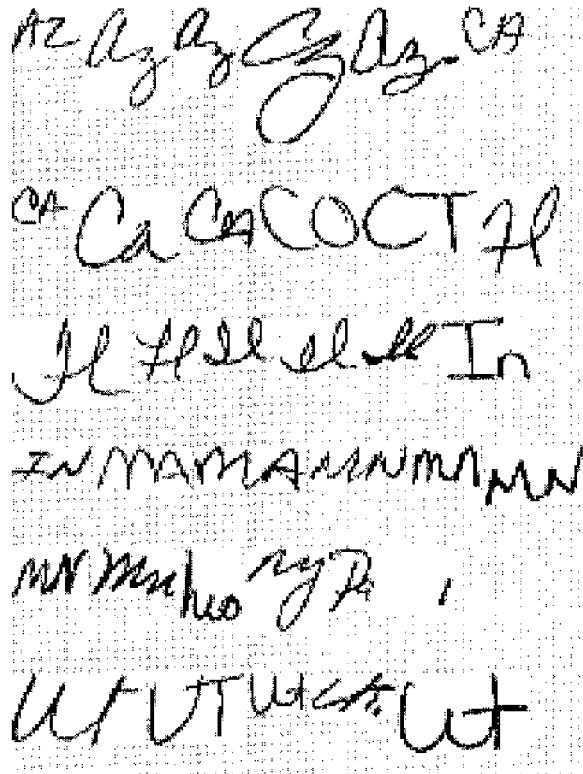 AZ Az Az Cz Az CA
CA Ca CA CO CT Fl
Fl Fl Il Il Il In
IN MA MA MN MN MN
MN Mn ny Pa
Ut UT Ut Ut